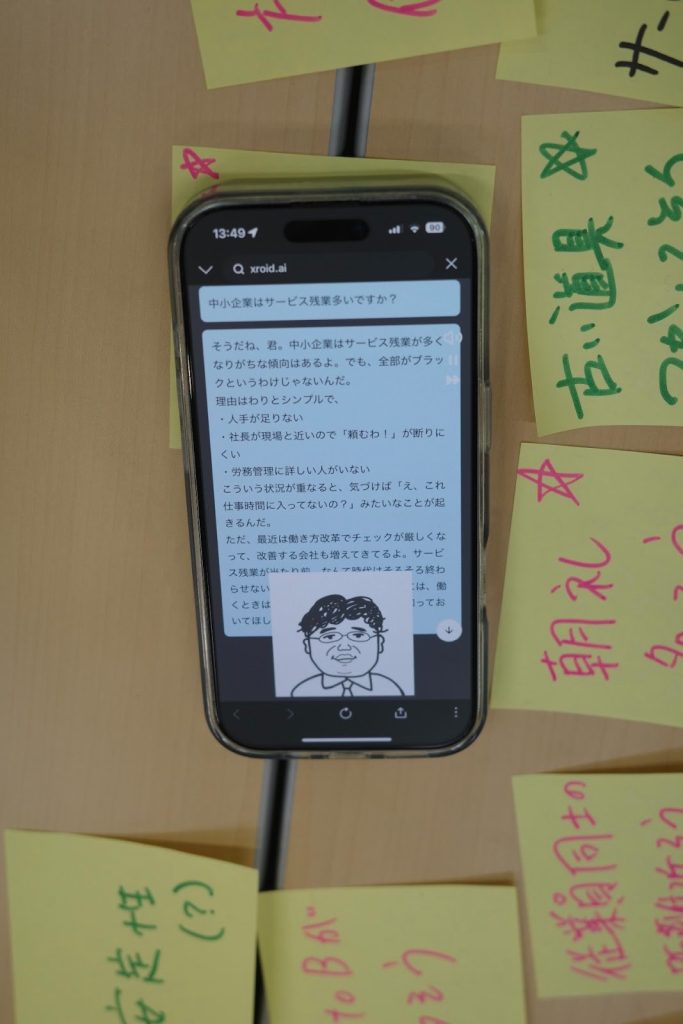 サー
13:49
90
xroid.ai
中小企業はサービス残業多いですか？
そうだね、君。中小企業はサービス残業が多く
なりがちな傾向はあるよ。でも、全部がブラッ
クというわけじゃないんだ。
理由はわりとシンプルで、
・人手が足りない
・社長が現場と近いので「頼むわ！」が断りに
くい
・労務管理に詳しい人がいない
こういう状況が重なると、気づけば「え、これ
仕事時間に入ってないの？」みたいなことが起
きるんだ。
ただ、最近は働き方改革でチェックが厳しくな
って、改善する会社も増えてきてるよ。サービ
ス残業が当たり前、なんて時代はそろそろ終わ
らせない
には、働
くときは
知ってお
いてほし
古い道具
つかってそう
朝礼
従業員同士の
安定性
(?)
to Bが